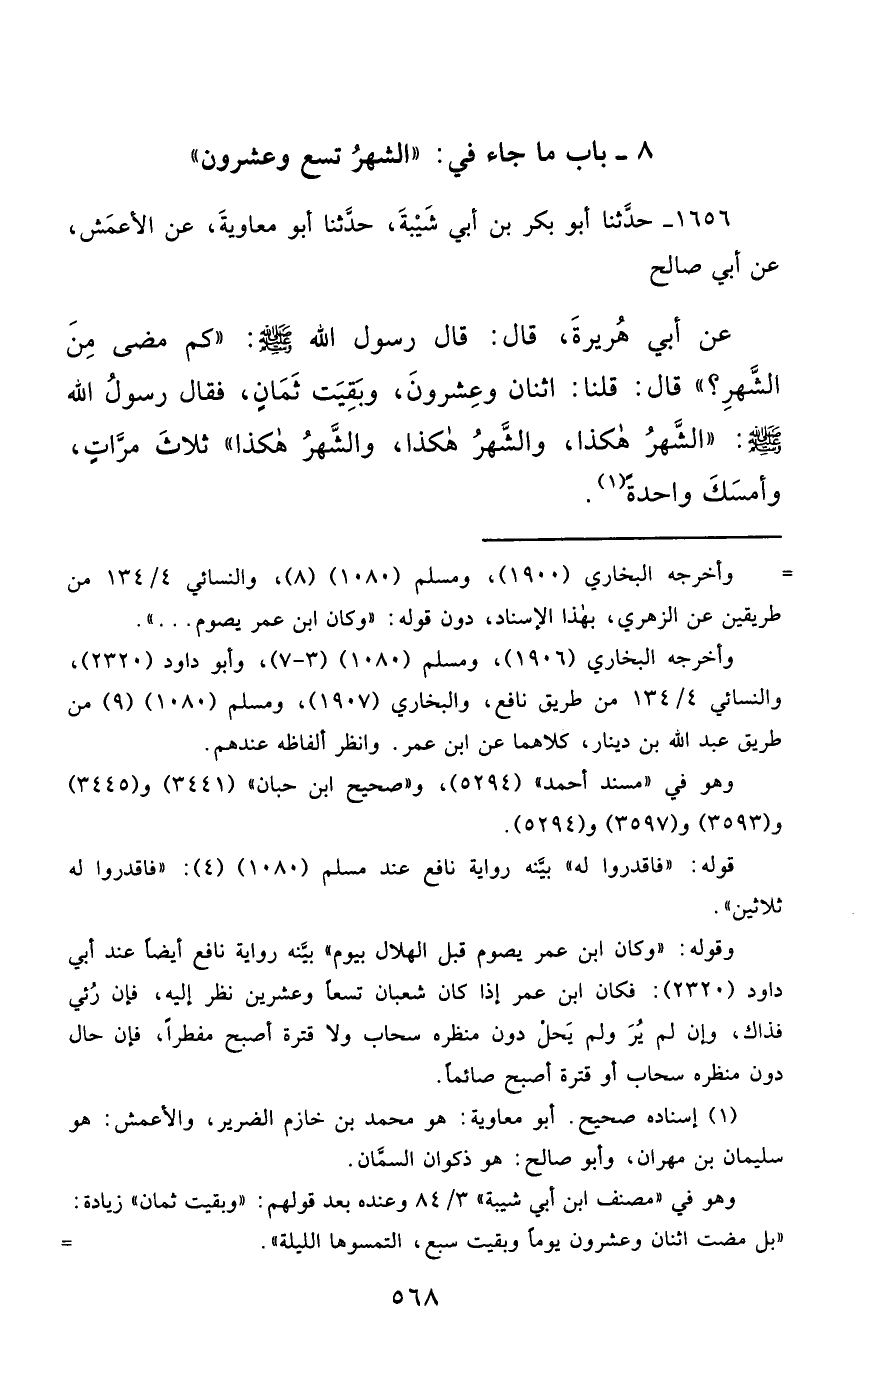 ٨ - باب ما جاء في: «الشهرُ تسع وعشرون»
١٦٥٦- حدَّثنا أبو بكر بن أبي شَيْبةَ، حدَّثنا أبو معاويةَ، عن الأعمَش،
عن أبي صالح
عن أبي هُريرةَ، قال: قال رسول الله ﷺ: «كم مضى مِنَ
الشَّهرِ؟» قال: قلنا: اثنان وعِشرونَ، وبَقِيَت ثَمَانٍ، فقال رسولُ الله
ﷺ: «الشَّهرُ هٰكذا، والشَّهرُ هٰكذا، والشَّهرُ هٰكذا» ثلاثَ مرَّاتٍ،
وأمسَكَ واحدةً(١).
= وأخرجه البخاري (١٩٠٠)، ومسلم (١٠٨٠) (٨)، والنسائي ٤/ ١٣٤ من
طريقين عن الزهري، بهٰذا الإسناد، دون قوله: «وكان ابن عمر يصوم...».
وأخرجه البخاري (١٩٠٦)، ومسلم (١٠٨٠) (٣-٧)، وأبو داود (٢٣٢٠)،
والنسائي ٤/ ١٣٤ من طريق نافع، والبخاري (١٩٠٧)، ومسلم (١٠٨٠) (٩) من
طريق عبد الله بن دينار، كلاهما عن ابن عمر. وانظر ألفاظه عندهم.
وهو في «مسند أحمد» (٥٢٩٤)، و«صحيح ابن حبان» (٣٤٤١) و(٣٤٤٥)
و(٣٥٩٣) و(٣٥٩٧) و(٥٢٩٤).
قوله: «فاقدروا له» بيَّنه رواية نافع عند مسلم (١٠٨٠) (٤): «فاقدروا له
ثلاثين».
وقوله: «وكان ابن عمر يصوم قبل الهلال بيوم» بيَّنه رواية نافع أيضاً عند أبي
داود (٢٣٢٠): فكان ابن عمر إذا كان شعبان تسعاً وعشرين نظر إليه، فإن رُئي
فذاك، وإن لم يُرَ ولم يَحلْ دون منظره سحاب ولا قترة أصبح مفطراً، فإن حال
دون منظره سحاب أو قترة أصبح صائماً.
(١) إسناده صحيح. أبو معاوية: هو محمد بن خازم الضرير، والأعمش: هو
سليمان بن مهران، وأبو صالح: هو ذكوان السمَّان.
وهو في «مصنف ابن أبي شيبة» ٣/ ٨٤ وعنده بعد قولهم: «وبقيت ثمان» زيادة:
«بل مضت اثنان وعشرون يوماً وبقيت سبع، التمسوها الليلة». =
٥٦٨